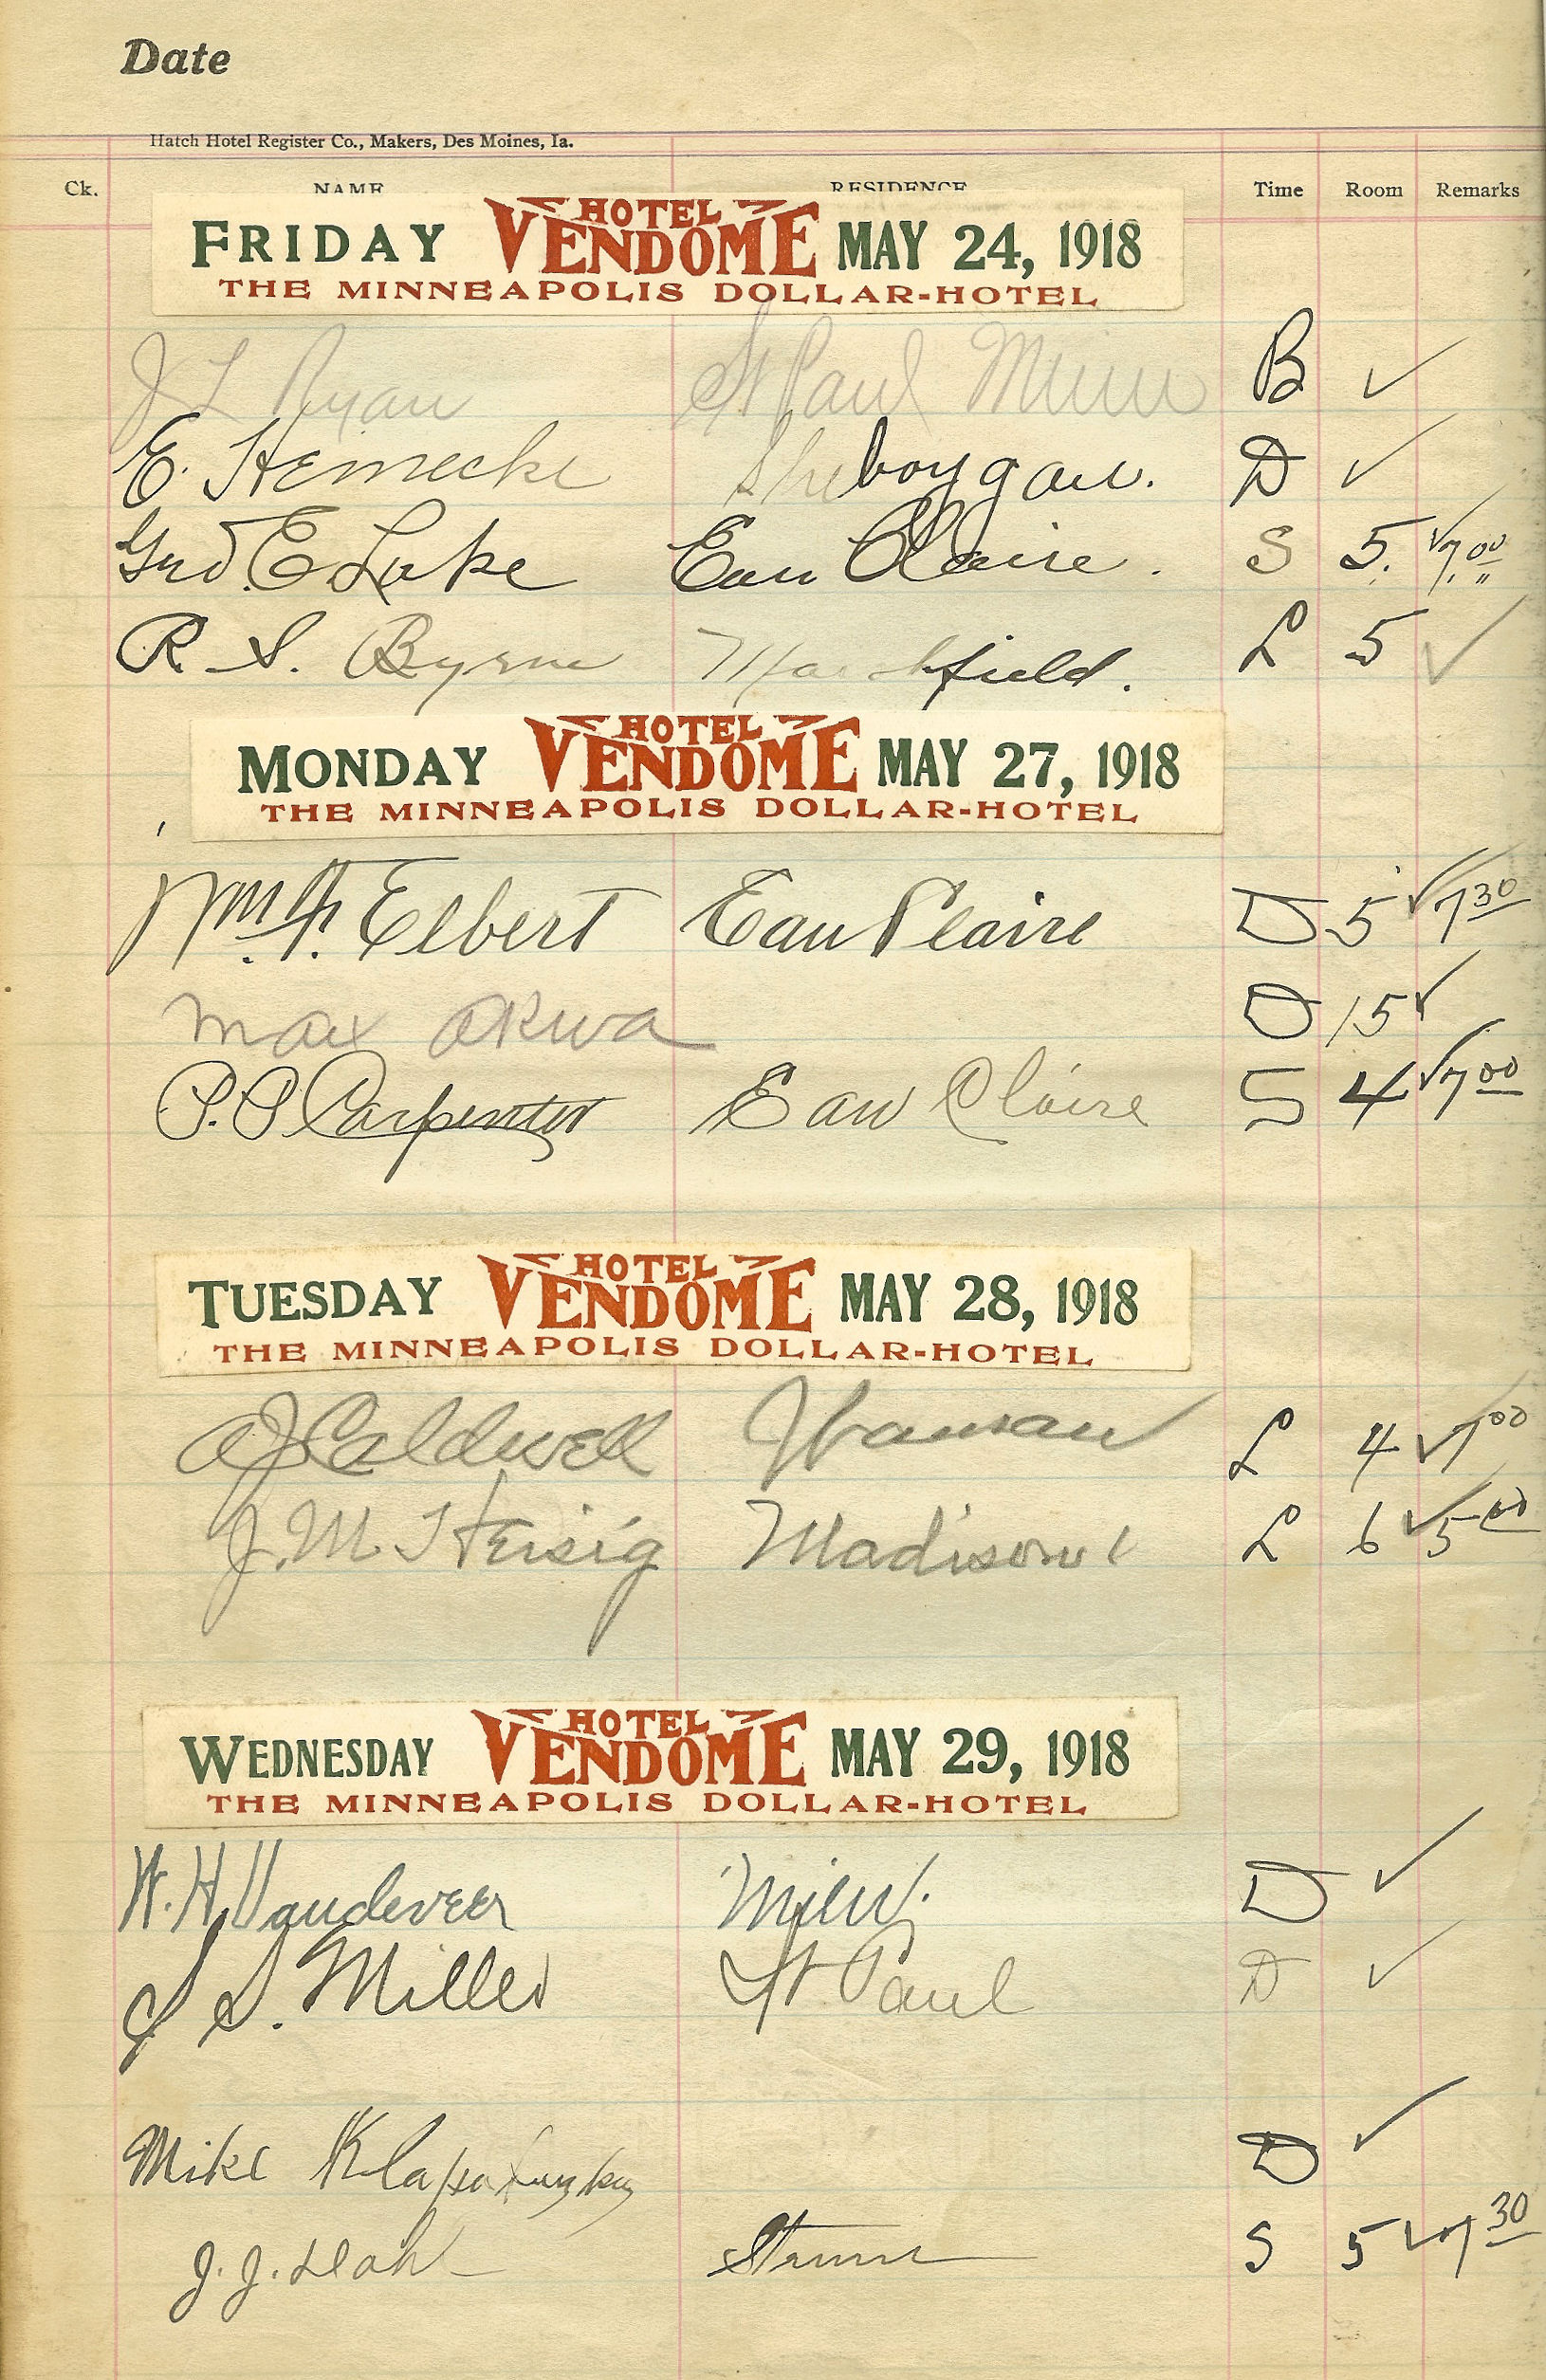 Date
Hatch Hotel Register Co., Makers, Des Moines, Ia.
Ck. NAME RESIDENCE Time Room Remarks
FRIDAY HOTEL VENDOME MAY 24, 1918
THE MINNEAPOLIS DOLLAR-HOTEL
J L Ryan St Paul Minn B ✓
E. Heinecke Sheboygan. D ✓
Geo. E Lake Eau Claire. S 5. ✓ 7.00
R. S. Byrne Marshfield. L 5 ✓
MONDAY HOTEL VENDOME MAY 27, 1918
THE MINNEAPOLIS DOLLAR-HOTEL
Wm. F. Elbert Eau Claire D 5 ✓ 7 30
Max D 15 ✓
P. P Carpenter Eau Claire S 4 ✓ 7 00
TUESDAY HOTEL VENDOME MAY 28, 1918
THE MINNEAPOLIS DOLLAR-HOTEL
A J Caldwell Wausau L 4 ✓ 7 00
J. M. Heisig Madison L 6 ✓ 5 00
WEDNESDAY HOTEL VENDOME MAY 29, 1918
THE MINNEAPOLIS DOLLAR-HOTEL
W. H. Vandeveer Milw. D ✓
S. Miller St Paul D ✓
Mike D ✓
J. J. S 5 ✓ 7 30